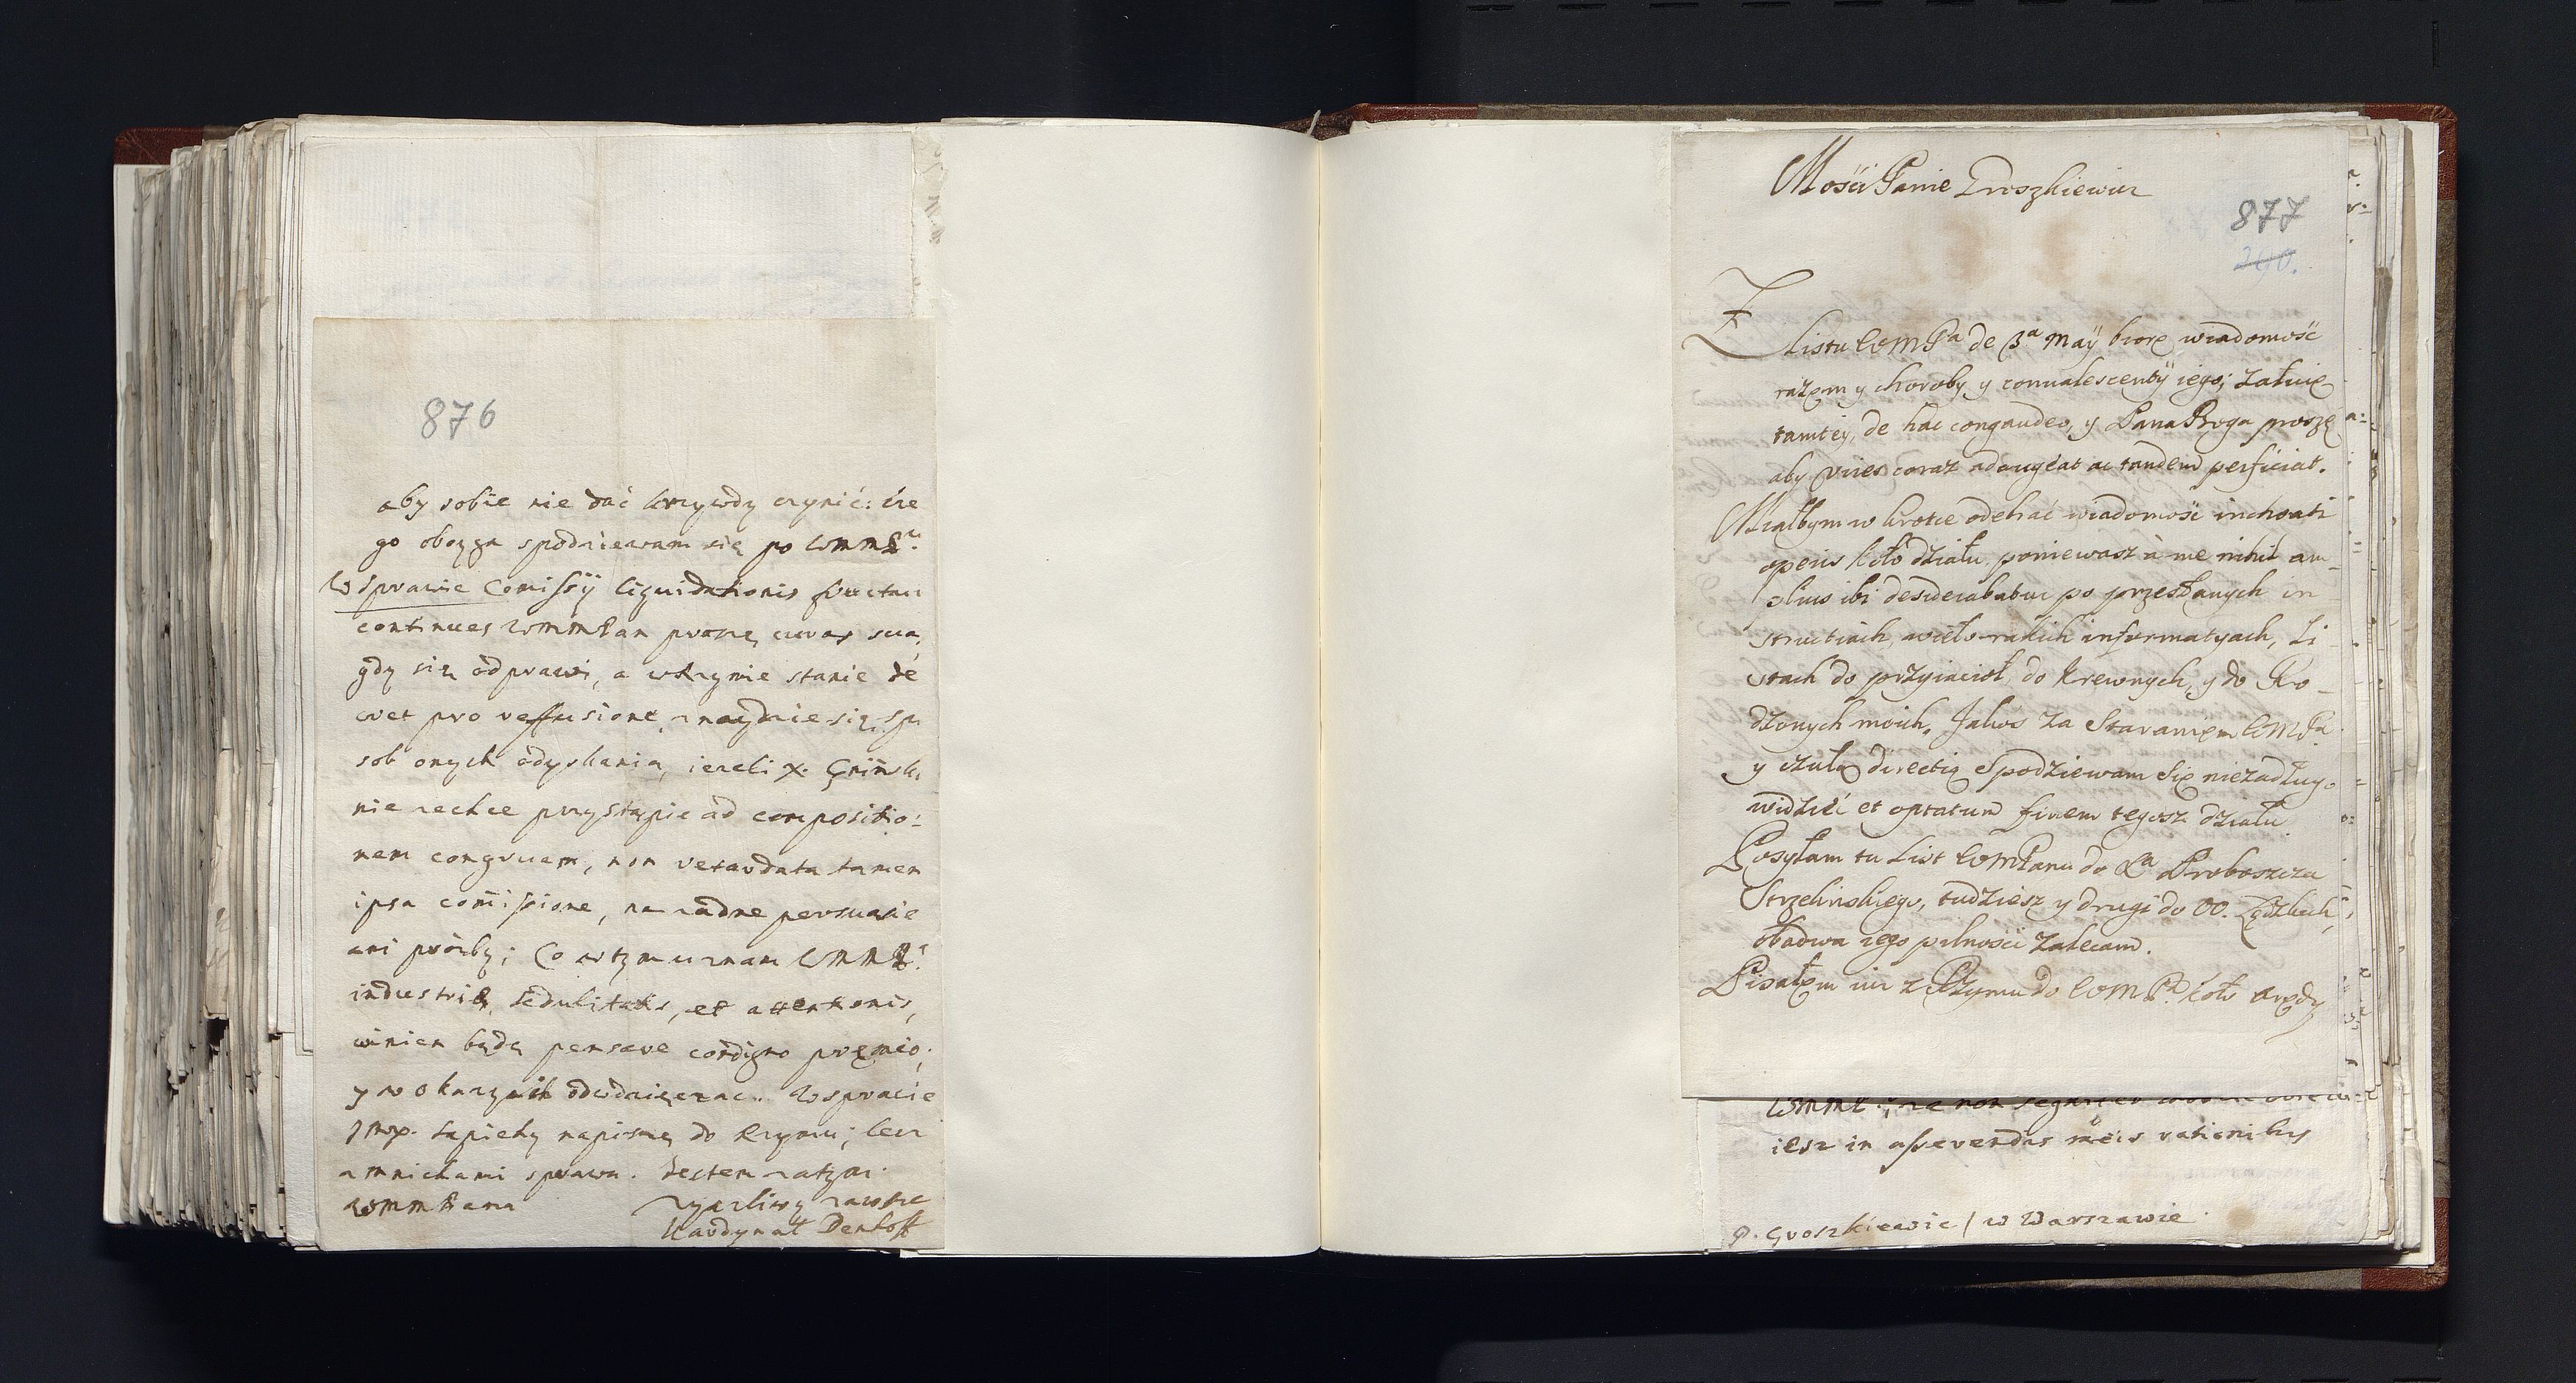 876
aby sobie nie dać krzywdy czynić: cze
go oboyga spodziewam się po WMMPa.
W sprawie Comissÿ liquidationis fructuu
continues WMMPan proszę curas suas,
gdy się odprawi, a w krzynie stanie de
cret pro reffusione, znaydzie się spo
sob onych odyskania, iezeli X. Gninsk.
nie zechce przystąpic ad compositio=
nem congruem, non retardata tamen
ipsa comissione, na zadne persuasie
ani proźby; Co w tym uznam WMMPa.
industriæ, sedulitatis, et attentionis,
winien będę pensare condigno præmio;
y w okazyach odwdzięczac. W sprawie
JMX. Sapiehy napiszę do Rzymu; lecz
z mnichami sprawa. Jestem zatym.
WMMPana zyczliwy zawsze
Kardynał Denhoff
Mośći Panie Groszkiewicz
877
240.
Z
Listu WMPa de 3a Maÿ biorę wiadomość
razem y choroby y conualescentÿ iego; załuię
tamtey, de hac congaudeo, y Pana Boga proszę
aby vires coraz adaugeat ac tandem perficiat.
Miałbym w krotce odebrać wiadomość inchoati
operis koło działu, poniewasz à me nihil am=
plius ibi desiderabatur po przesłanych in
structiach, wielo-rakich informatyach, Li=
stach do przyiacioł, do Krewnych, y do Ro=
dzonych moich. Jakoz za Staraniem WMPa
y czułą directią Spodziewam Się niezadługo
widzieć et optatum finem tegosz działu.
Posyłam tu List WMPanu do Xa Proboszcza
Strzelinskiego, tudziesz y drugi do OO.
obadwa iego pilnosći zalecam.
Pisałem iuz z Rzymu do WMPa. koło Arędy
WMMP.
iesz in asserendis meis rationibus
P. Groszkiewic / w Warszawie